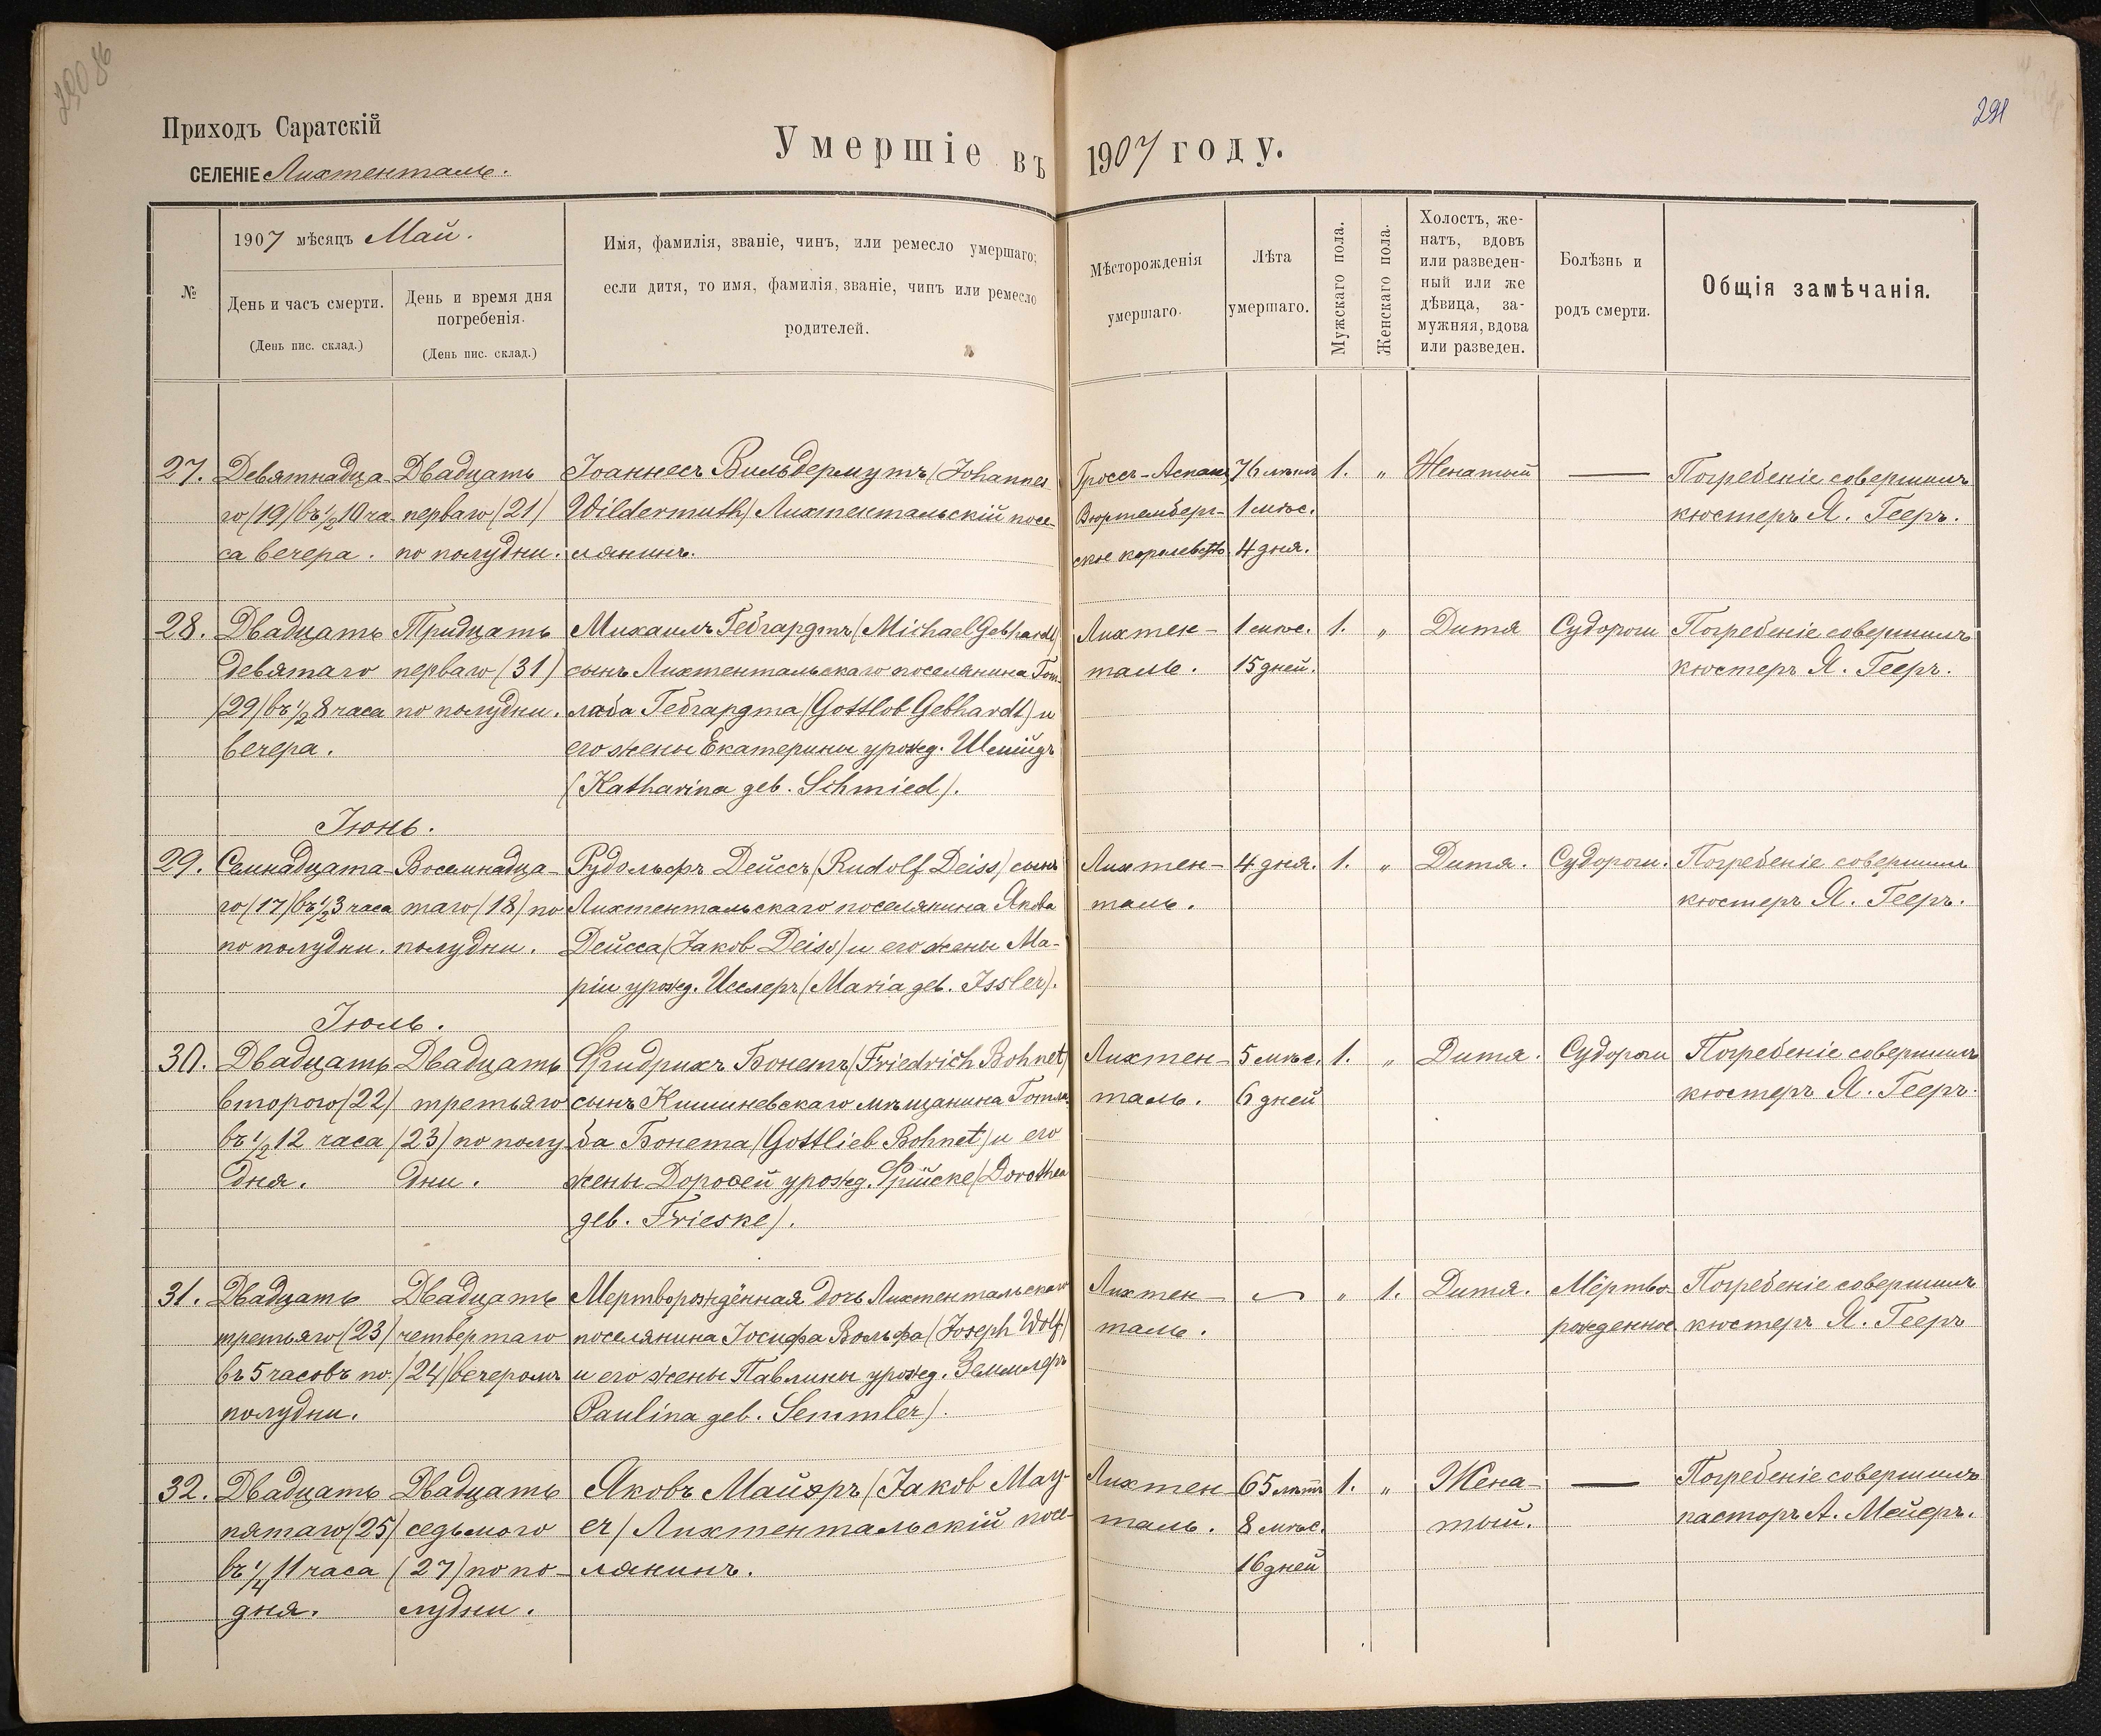 290 об
291
Приходъ Саратскій
СЕЛЕНІЕ Лихтенталь.
Умершіе въ 1907 году.
№
1907 мѣсяцъ Май.
День и часъ смерти.
(День пис. склад.)
День и время дня
погребенія.
(День пис. склад.)
Имя, фамилія, званіе, чинъ, или ремесло умершаго;
если дитя, то имя, фамилія, званіе, чинъ или ремесло
родителей.
Мѣсторожденія
умершаго.
Лѣта
умершаго.
Мужскаго пола.
Женскаго пола.
Холостъ, же-
натъ, вдовъ
или разведен-
ный или же
дѣвица, за-
мужняя, вдова
или разведен.
Болѣзнь и
родъ смерти.
Общія замѣчанія.
27. Девятнадца- Двадцать Іоаннесъ Вильдермутъ (Johannes Гроссъ-Аспахъ 76 лѣтъ 1. „ Женатый — Погребеніе совершилъ
го (19) въ ½ 10 ча- перваго (21) Wildermuth) Лихтентальскій посе- Вюртемберг- 1 мѣс. кюстеръ Я. Гееръ.
са вечера. по полудни. лянинъ. ское королевство 4 дня.
28. Двадцать Тридцать Михаилъ Гебгардтъ (Michael Gebhardt) Лихтен- 1 мѣс. 1. „ Дитя Судороги Погребеніе совершилъ
девятаго перваго (31) сынъ Лихтентальскаго поселянина Гот- таль. 15 дней. кюстеръ Я. Гееръ.
(29) въ ½ 8 часа по полудни. лоба Гебгардта (Gottlob Gebhardt) и
вечера. его жены Екатерины урожд. Шмидъ
(Katharina geb. Schmied).
Іюнь.
29. Семнадцата- Восемнадца- Рудольфъ Дейссъ (Rudolf Deiss) сынъ Лихтен- 4 дня. 1. „ Дитя. Судороги. Погребеніе совершилъ
го (17) въ ½ 3 часа таго (18) по Лихтентальскаго поселянина Якова таль. кюстеръ Я. Гееръ.
по полудни. полудни. Дейсса (Jakob Deiss) и его жены Ма-
ріи урожд. Исслеръ (Maria geb. Issler).
Іюль.
30. Двадцать Двадцать Фридрихъ Бонетъ (Friedrich Bohnet) Лихтен- 5 мѣс. 1. „ Дитя. Судороги Погребеніе совершилъ
второго (22) третьяго сынъ Кишиневскаго мѣщанина Готли- таль. 6 дней кюстеръ Я. Гееръ.
въ ½ 12 часа (23) по полу- ба Бонета (Gottlieb Bohnet) и его
дня. дни. жены Доротеи урожд. Фриске (Dorothea
geb. Frieske).
31. Двадцать Двадцать Мертворождённая дочь Лихтентальскаго Лихтен- — „ 1. Дитя. Мёртво- Погребеніе совершилъ
третьяго (23) четвертаго поселянина Іосифа Вольфа (Joseph Wolf) таль. рожденное. кюстеръ Я. Гееръ
въ 5 часовъ по- (24) вечеромъ и его жены Павлины урожд. Земмлеръ
полудни. Paulina geb. Semmler).
32. Двадцать Двадцать Яковъ Майэръ (Jakob May- Лихтен- 65 лѣтъ 1. „ Жена- — Погребеніе совершилъ
пятаго (25) седьмого er) Лихтентальскій посе- таль. 8 мѣс. тый. пасторъ А. Мейеръ.
въ ¼ 11 часа (27) по по- лянинъ. 16 дней
дня. лудни.